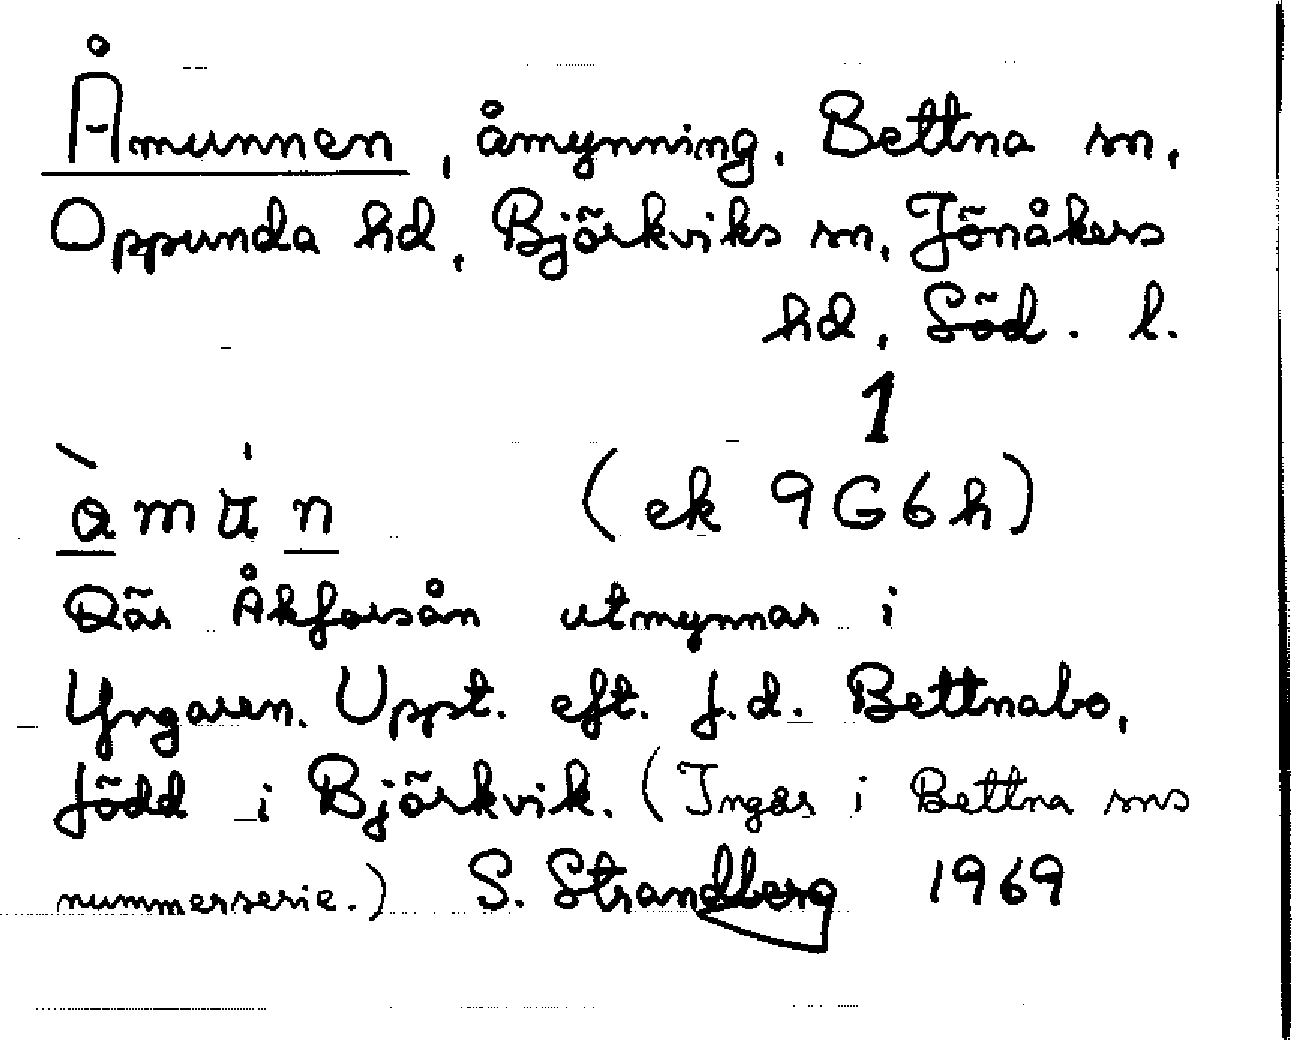 Åmunnen, åmynning, Bettna sn,
Oppunda hd, Björkviks sn, Jönåkers
hd, Söd. l.
1
(ek 9G6h)
Där Åkforsån utmynnar i
Yngaren. Uppt. eft. f.d. Bettnabo,
född i Björkvik. (Ingår i Bettna sns
nummerserie.) S. Strandberg 1969